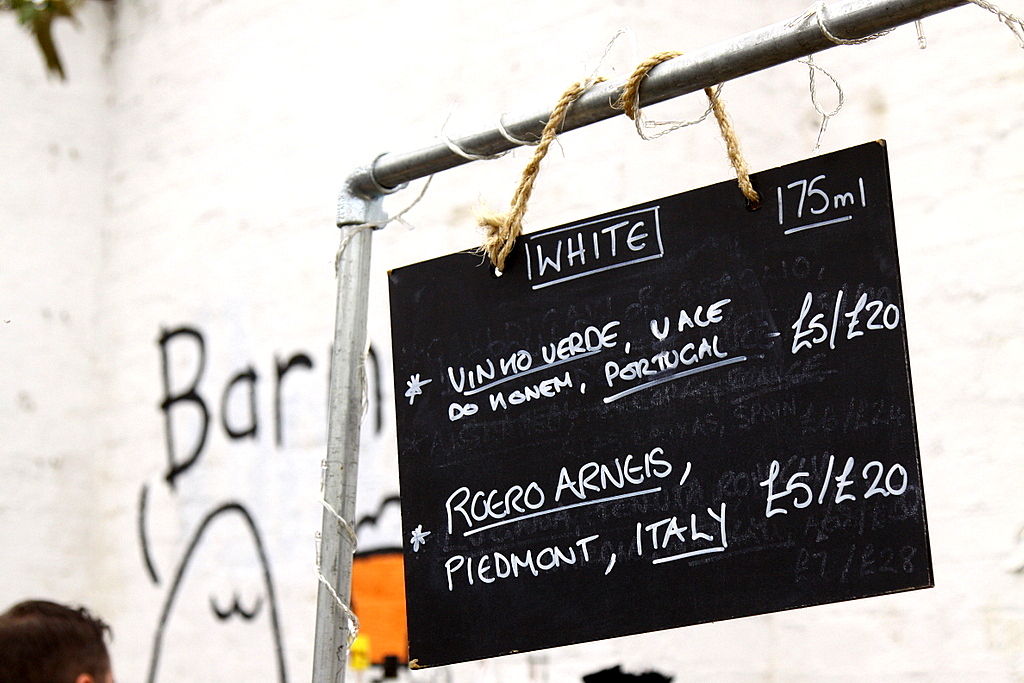 WHITE
175ml
* VINHO VERDE, VALE
DO HOMEM, PORTUGAL - £5/£20
* ROERO ARNEIS,
PIEDMONT, ITALY £5/£20
Bar